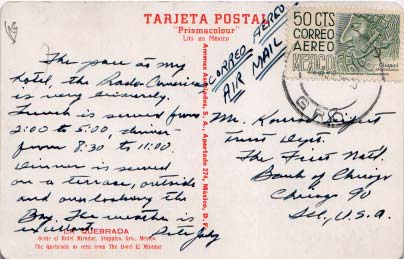 TARJETA POSTAL
"Prismacolour"
Lito en México
CORREO AEREO
AIR MAIL
50 CTS
CORREO
AEREO
MEXICO
The pace at my
hotel, the Rada-America
is very leisurely.
Lunch is served from
2:00 to 5:00, dinner
from 8:30 to 11:00.
Dinner is served
on a terrace, outside
and overlooking the
Bay. The weather is
excellent.
Pete
Ammex Asociados, S. A., Apartado 274, México, D. F.
Mr.
Trust Dept.
The First Natl.
Bank of Chicago
Chicago 90
Ill., U.S.A.
LA QUEBRADA
desde el Hotel Mirador, Acapulco, Gro., Mexico.
The Quebrada as seen from The Hotel El Mirador